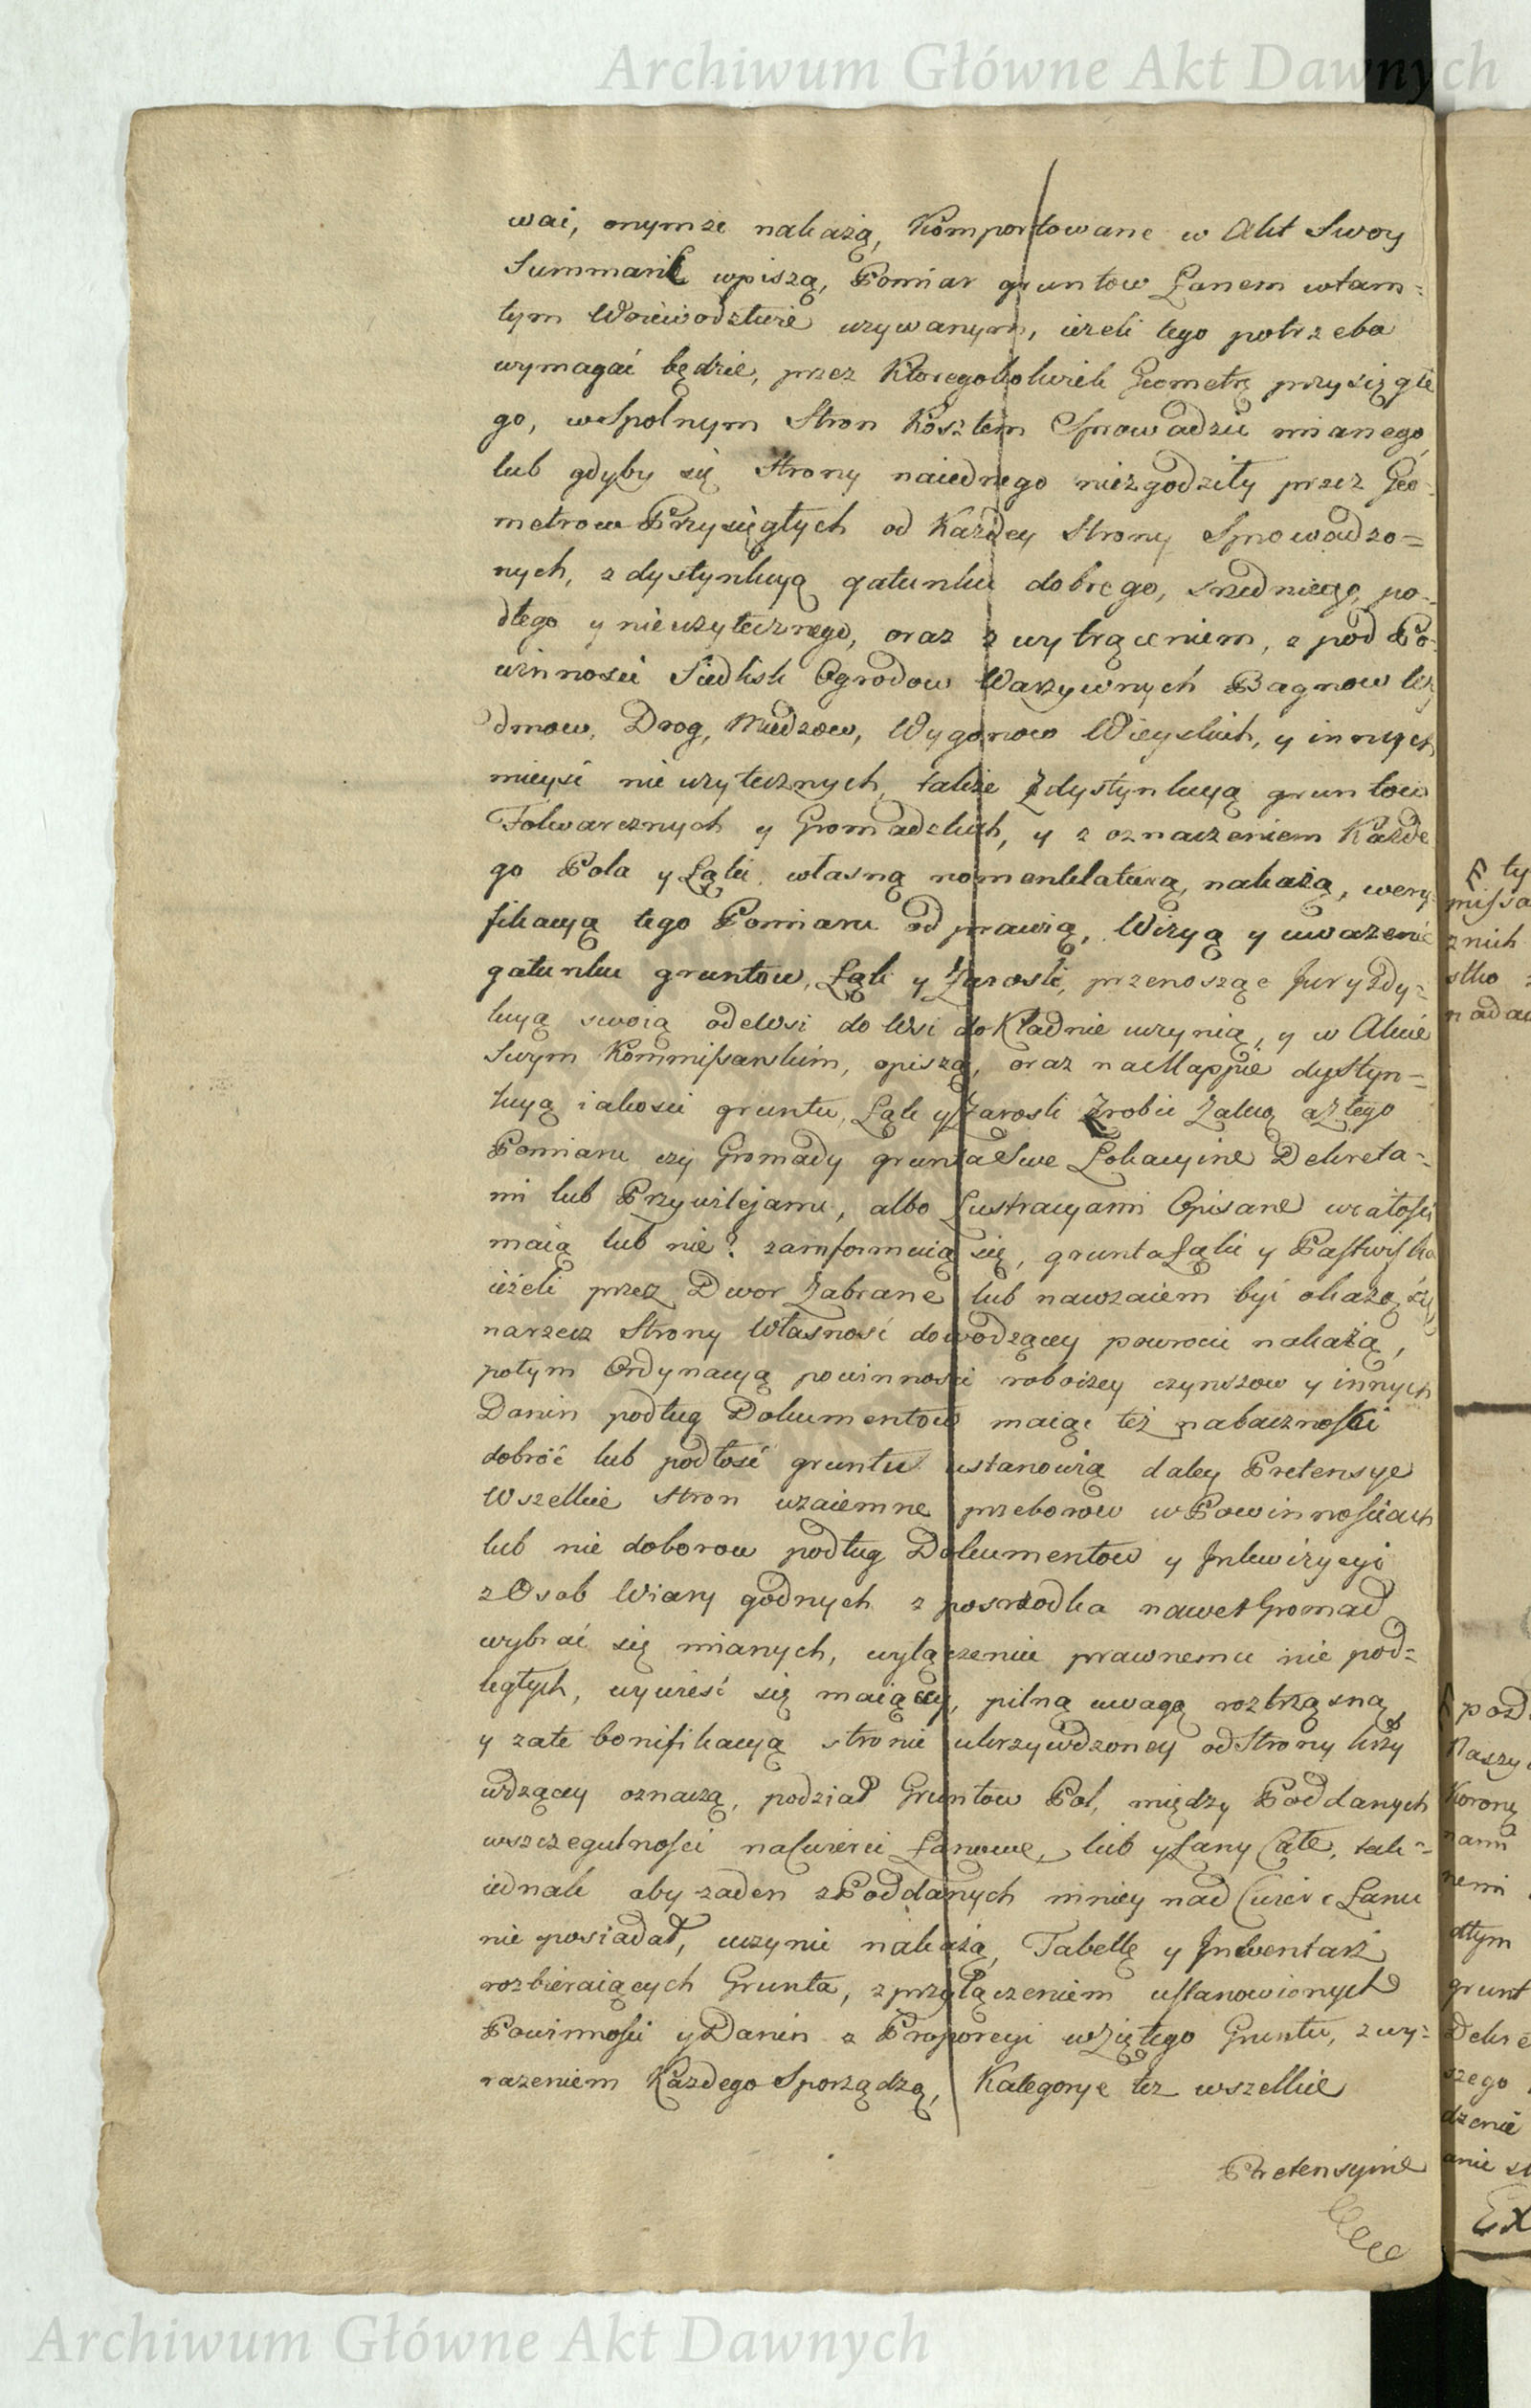 Archiwum Główne Akt Dawnych
wai, onymże nakażą, Komportowane w Akt Swoy
Summarie wpiszą, Pomiar gruntow Łanem wtam=
tym Woiewodztwie uzywanym, ieżeli tego potrzeba
wymagać będzie, przez Ktoregokolwiek Geometrę przysięgłe
go, wspolnym Stron Kosztem Sprowadzić mianego,
lub gdyby się Strony naiednego niezgodziły przez Geo-
metrow Przysięgłych od Każdey Strony Sprowadzo=
nych, z dystynkcyą gatunku dobrego, średniego, po-
dłego y nieużytecznego, oraz z wytrąceniem, z pod Po-
winności Siedlisk Ogrodow Warzywnych Bagnow Wy
dmow, Drog, Miedzow, Wygonow Wieyskich, y innych
mieysc nie uzytecznych, także Zdystynkcyą gruntow
Folwarcznych y Gromadzkich, y z oznaczeniem Każde
go Pola y Łąki własną nomenklaturą, nakażą, wery-
fikacyą tego Pomiaru odprawią, Wizyą y uważenie
gatunku gruntow, Łąk y Zarośli, przenosząc Juryzdy=
kcyą swoią odeWsi do Wsi doKładnie uczynią, y w Akcie
Swym Kommissarskim, opiszą, oraz naMappie dystyn=
kcyą iakości gruntu, Łąk y Zarośli Zrobić Zalecą aztego
Pomiaru czy Gromady grunta Swe Lokacyine Dekreta=
mi lub Przywilejami, albo Lustracyami Opisane wcałości
maią lub nie? zainformuią się, grunta Łąki y Pastwiska
ieżeli przez Dwor Zabrane lub nawzaiem być okażą się
narzecz Strony Własność dowodzącey powrocić nakażą,
potym Ordynacyą powinności roboczey czynszow y innych
Danin podług Dokumentow maiąc też nabaczności
dobroć lub podłość gruntu ustanowią daley Pretensye
Wszelkie Stron wzaiemne przeborow w Powinnościach
lub nie doborow podług Dokumentow y Jnkwizycyi
z Osob Wiary godnych z posrzodka nawet Gromad
wybrać się mianych, wyłączeniu prawnemu nie pod=
ległych, wywieść się maiącey, pilną uwagą roztrząsną
y zate bonifikacyą stronie ukrzywdzoney od Strony krzy
wdzącey oznaczą, podział Gruntow Pol, między Poddanych
wszczegulności naCwierci Łanowe, lub y Łany Całe, tak=
iednak aby zaden z Poddanych mniey nad Cwierć Łanu
nie posiadał, uczynić nakażą, Tabellę y Jnwentarz
rozbieraiących Grunta, z przyłączeniem ustanowionych
Powinności y Danin z Proporcyi wziętego Gruntu, z wy=
rażeniem Każdego Sporządzą, Kategorye też wszelkie
Pretensyine
ty
missa
znich
stko
nadai
pod
Naszy
Korony
nami
nemi
dłym
grunt
Dekre
szego
dzenie
anie
Ex
Archiwum Główne Akt Dawnych